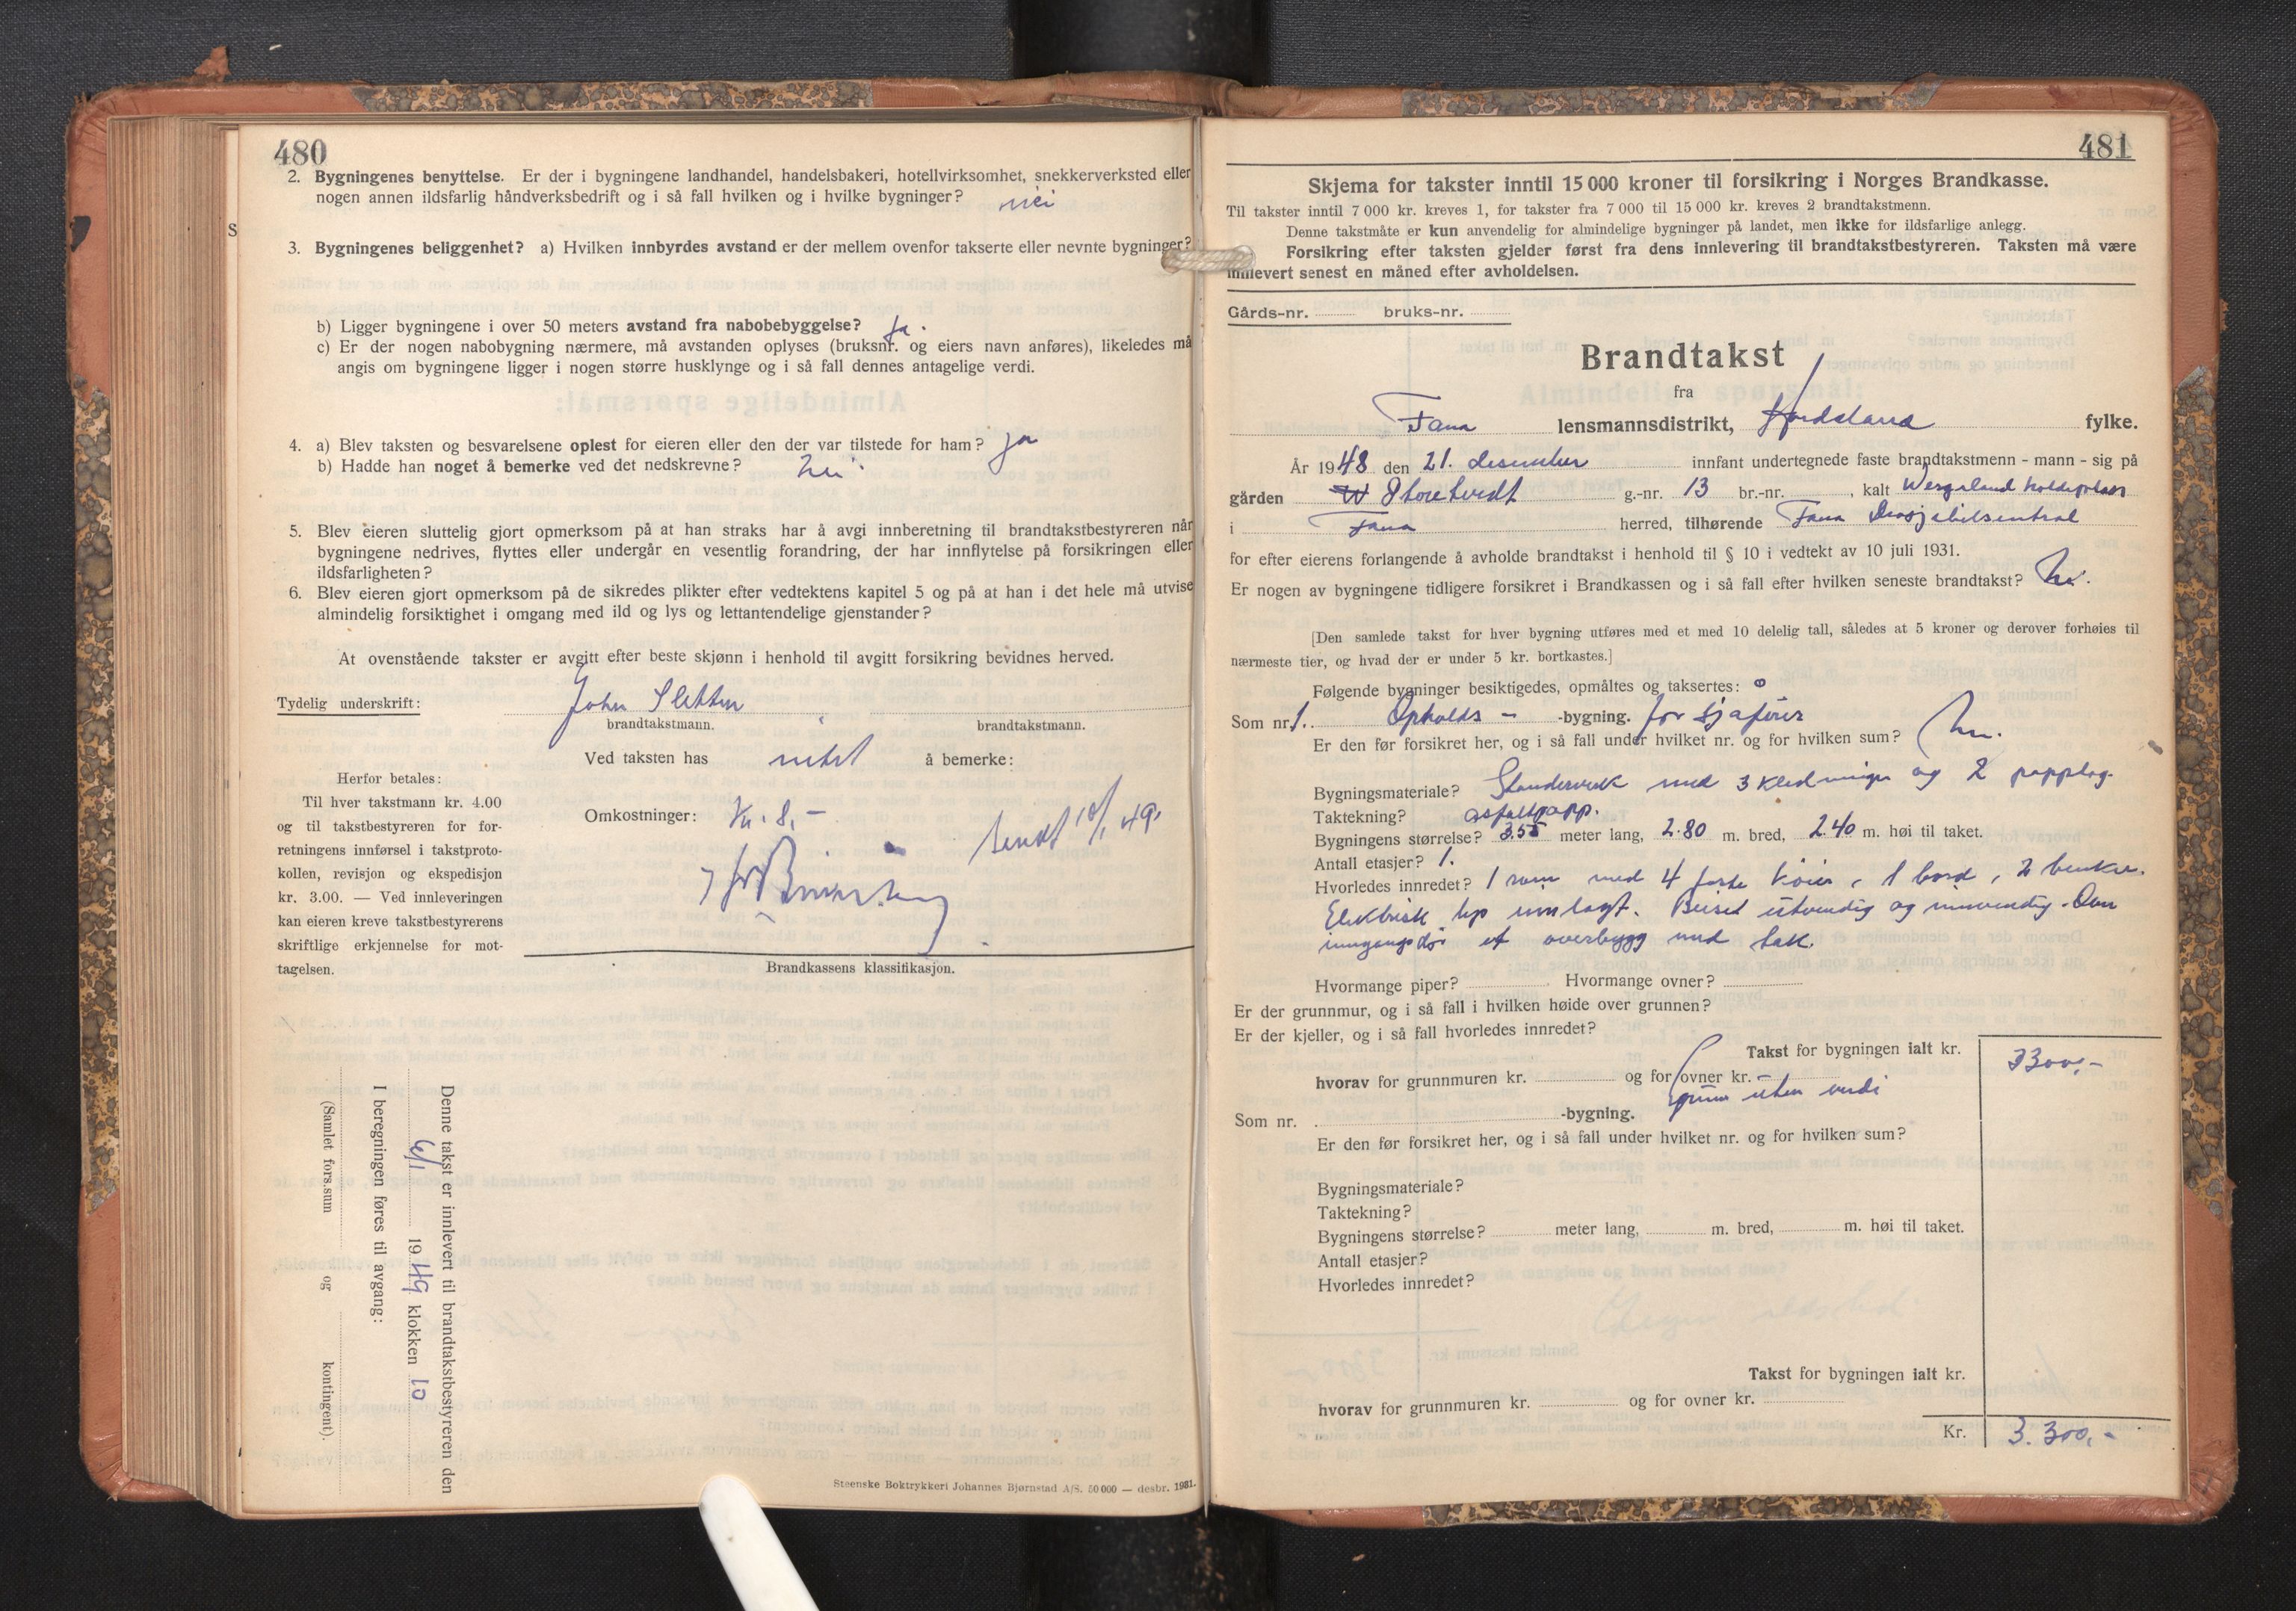 480
2. Bygningenes benyttelse. Er der i bygningene landhandel, handelsbakeri, hotellvirksomhet, snekkerverksted eller
nogen annen ildsfarlig håndverksbedrift og i så fall hvilken og i hvilke bygninger? nei
3. Bygningenes beliggenhet? a) Hvilken innbyrdes avstand er der mellem ovenfor takserte eller nevnte bygninger?
b) Ligger bygningene i over 50 meters avstand fra nabobebyggelse? Ja.
c) Er der nogen nabobygning nærmere, må avstanden oplyses (bruksnr. og eiers navn anføres), likeledes må
angis om bygningene ligger i nogen større husklynge og i så fall dennes antagelige verdi.
4. a) Blev taksten og besvarelsene oplest for eieren eller den der var tilstede for ham? ja
b) Hadde han noget å bemerke ved det nedskrevne? nei.
5. Blev eieren sluttelig gjort opmerksom på at han straks har å avgi innberetning til brandtakstbestyreren når
bygningene nedrives, flyttes eller undergår en vesentlig forandring, der har innflytelse på forsikringen eller
ildsfarligheten?
6. Blev eieren gjort opmerksom på de sikredes plikter efter vedtektens kapitel 5 og på at han i det hele må utvise
almindelig forsiktighet i omgang med ild og lys og lettantendelige gjenstander?
At ovenstående takster er avgitt efter beste skjønn i henhold til avgitt forsikring bevidnes herved.
Tydelig underskrift: John Sletten
brandtakstmann. brandtakstmann.
Ved taksten has intet å bemerke:
Herfor betales:
Til hver takstmann kr. 4.00
og til takstbestyreren for for-
retningens innførsel i takstproto-
kollen, revisjon og ekspedisjon
kr. 3.00. — Ved innleveringen
kan eieren kreve takstbestyrerens
skriftlige erkjennelse for mot-
tagelsen.
Omkostninger: Kr. 8,-
sendt 10/1 49.
Brandkassens klassifikasjon.
Denne takst er innlevert til brandtakstbestyreren den
6/1 1949 klokken 10
I beregningen føres til avgang:
(Samlet fors.sum og kontingent).
Steenske Boktrykkeri Johannes Bjørnstad A/S. 50 000 — desbr. 1931.
481
Skjema for takster inntil 15 000 kroner til forsikring i Norges Brandkasse.
Til takster inntil 7 000 kr. kreves 1, for takster fra 7 000 til 15 000 kr. kreves 2 brandtakstmenn.
Denne takstmåte er kun anvendelig for almindelige bygninger på landet, men ikke for ildsfarlige anlegg.
Forsikring efter taksten gjelder først fra dens innlevering til brandtakstbestyreren. Taksten må være
innlevert senest en måned efter avholdelsen.
Gårds-nr. bruks-nr.
Brandtakst
fra
Fana lensmannsdistrikt, Hordaland fylke.
År 1948 den 21. desember innfant undertegnede faste brandtakstmenn - mann - sig på
gården Storetvedt g.-nr. 13 br.-nr. , kalt Wergeland holdeplass
i Fana herred, tilhørende Fana Drosjebilsentral
for efter eierens forlangende å avholde brandtakst i henhold til § 10 i vedtekt av 10 juli 1931.
Er nogen av bygningene tidligere forsikret i Brandkassen og i så fall efter hvilken seneste brandtakst? Nei.
[Den samlede takst for hver bygning utføres med et med 10 delelig tall, således at 5 kroner og derover forhøies til
nærmeste tier, og hvad der er under 5 kr. bortkastes.]
Følgende bygninger besiktigedes, opmåltes og taksertes:
Som nr. 1. Opholds - -bygning. for sjåfører
Er den før forsikret her, og i så fall under hvilket nr. og for hvilken sum? Nei.
Bygningsmateriale? Standerverk med 3 kledninger og 2 papplag.
Taktekning? asfaltpapp.
Bygningens størrelse? 3.55 meter lang, 2.80 m. bred, 2.40 m. høi til taket.
Antall etasjer? 1.
Hvorledes innredet? 1 rom med 4 faste køier, 1 bord, 2 benker.
Elektrisk lys innlagt. Beiset utvendig og innvendig. Over
inngangsdør et overbygg med tak.
Hvormange piper? Hvormange ovner?
Er der grunnmur, og i så fall i hvilken høide over grunnen?
Er der kjeller, og i så fall hvorledes innredet?
Takst for bygningen ialt kr. 3300,-
hvorav for grunnmuren kr. og for ovner kr.
uten verdi
Som nr. -bygning.
Er den før forsikret her, og i så fall under hvilket nr. og for hvilken sum?
Bygningsmateriale?
Taktekning?
Bygningens størrelse? meter lang, m. bred, m. høi til taket.
Antall etasjer?
Hvorledes innredet?
Takst for bygningen ialt kr.
hvorav for grunnmuren kr. og for ovner kr.
Kr. 3.300,-